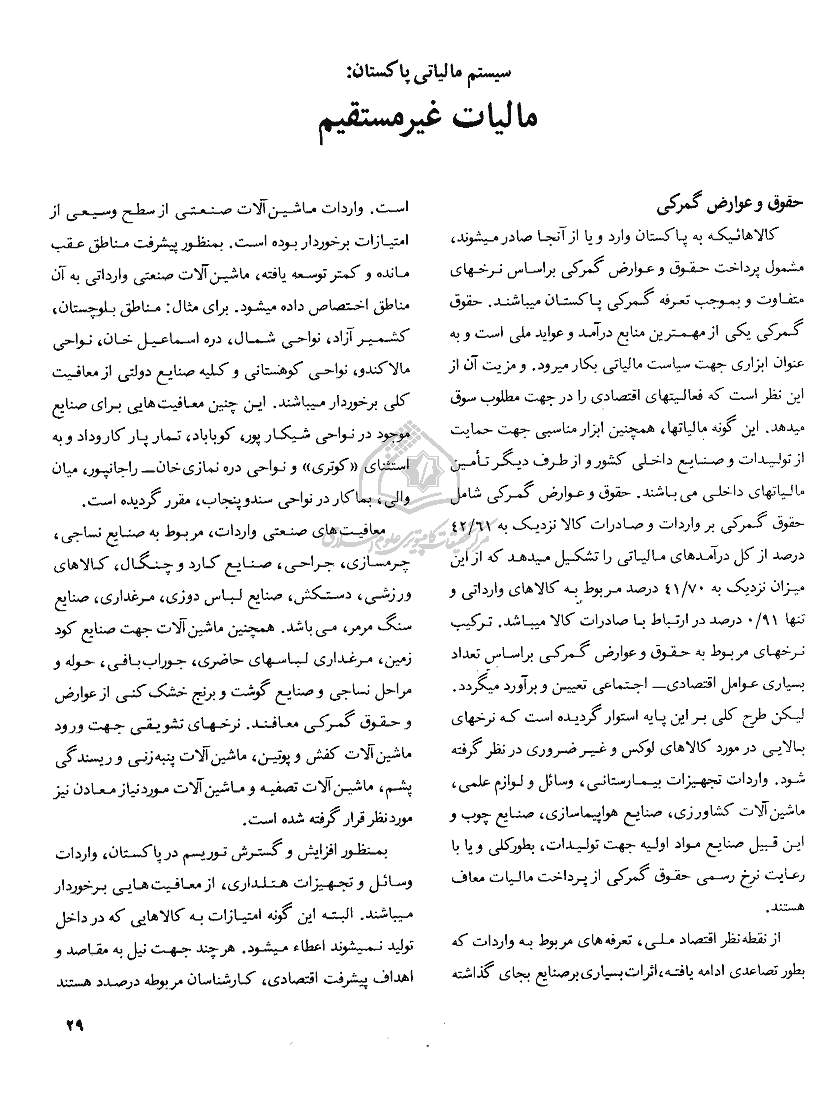 سیستم مالیاتی پاکستان:
مالیات غیرمستقیم
حقوق و عوارض گمرکی
کالاهائیکه به پاکستان وارد و یا از آنجا صادر میشوند،
مشمول پرداخت حقوق و عوارض گمرکی براساس نرخهای
متفاوت و بموجب تعرفه گمرکی پاکستان میباشند. حقوق
گمرکی یکی از مهمترین منابع درآمد و عواید ملی است و به
عنوان ابزاری جهت سیاست مالیاتی بکار میرود. و مزیت آن از
این نظر است که فعالیتهای اقتصادی را در جهت مطلوب سوق
میدهد. این گونه مالیاتها، همچنین ابزار مناسبی جهت حمایت
از تولیدات و صنایع داخلی کشور و از طرف دیگر تأمین
مالیاتهای داخلی می باشند. حقوق و عوارض گمرکی شامل
حقوق گمرکی بر واردات و صادرات کالا نزدیک به ۴۲/۶۱
درصد از کل درآمدهای مالیاتی را تشکیل میدهد که از این
میزان نزدیک به ۴۱/۷۰ درصد مربوط به کالاهای وارداتی و
تنها ۰/۹۱ درصد در ارتباط با صادرات کالا میباشد. ترکیب
نرخهای مربوط به حقوق و عوارض گمرکی براساس تعداد
بسیاری عوامل اقتصادی— اجتماعی تعیین و برآورد میگردد.
لیکن طرح کلی بر این پایه استوار گردیده است که نرخهای
بالایی در مورد کالاهای لوکس و غیر ضروری در نظر گرفته
شود. واردات تجهیزات بیمارستانی، وسائل و لوازم علمی،
ماشین آلات کشاورزی، صنایع هواپیماسازی، صنایع چوب و
این قبیل صنایع مواد اولیه جهت تولیدات، بطورکلی و یا با
رعایت نرخ رسمی حقوق گمرکی از پرداخت مالیات معاف
هستند.
از نقطه نظر اقتصاد ملی، تعرفه های مربوط به واردات که
بطور تصاعدی ادامه یافته، اثرات بسیاری برصنایع بجای گذاشته
است. واردات ماشین آلات صنعتی از سطح وسیعی از
امتیازات برخوردار بوده است. بمنظور پیشرفت مناطق عقب
مانده و کمتر توسعه یافته، ماشین آلات صنعتی وارداتی به آن
مناطق اختصاص داده میشود. برای مثال: مناطق بلوچستان،
کشمیر آزاد، نواحی شمال، دره اسماعیل خان، نواحی
مالاکندو، نواحی کوهستانی و کلیه صنایع دولتی از معافیت
کلی برخوردار میباشند. این چنین معافیت هایی برای صنایع
موجود در نواحی شیکار پور، کوباباد، تمار پار کار وداد و به
استثنای «کوتری» و نواحی دره نمازی خان— راجانپور، میان
والی، بماکار در نواحی سندو پنجاب، مقرر گردیده است.
معافیت های صنعتی واردات، مربوط به صنایع نساجی،
چرمسازی، جراحی، صنایع کارد و چنگال، کالاهای
ورزشی، دستکش، صنایع لباس دوزی، مرغداری، صنایع
سنگ مرمر، می باشد. همچنین ماشین آلات جهت صنایع کود
زمین، مرغداری لباسهای حاضری، جوراب بافی، حوله و
مراحل نساجی و صنایع گوشت و برنج خشک کنی از عوارض
و حقوق گمرکی معافند. نرخهای تشویقی جهت ورود
ماشین آلات کفش و پوتین، ماشین آلات پنبه زنی و ریسندگی
پشم، ماشین آلات تصفیه و ماشین آلات مورد نیاز معادن نیز
مورد نظر قرار گرفته شده است.
بمنظور افزایش و گسترش توریسم در پاکستان، واردات
وسائل و تجهیزات هتلداری، از معافیت هایی برخوردار
میباشند. البته این گونه امتیازات به کالاهایی که در داخل
تولید نمیشوند اعطاء میشود. هر چند جهت نیل به مقاصد و
اهداف پیشرفت اقتصادی، کارشناسان مربوطه درصدد هستند
۲۹